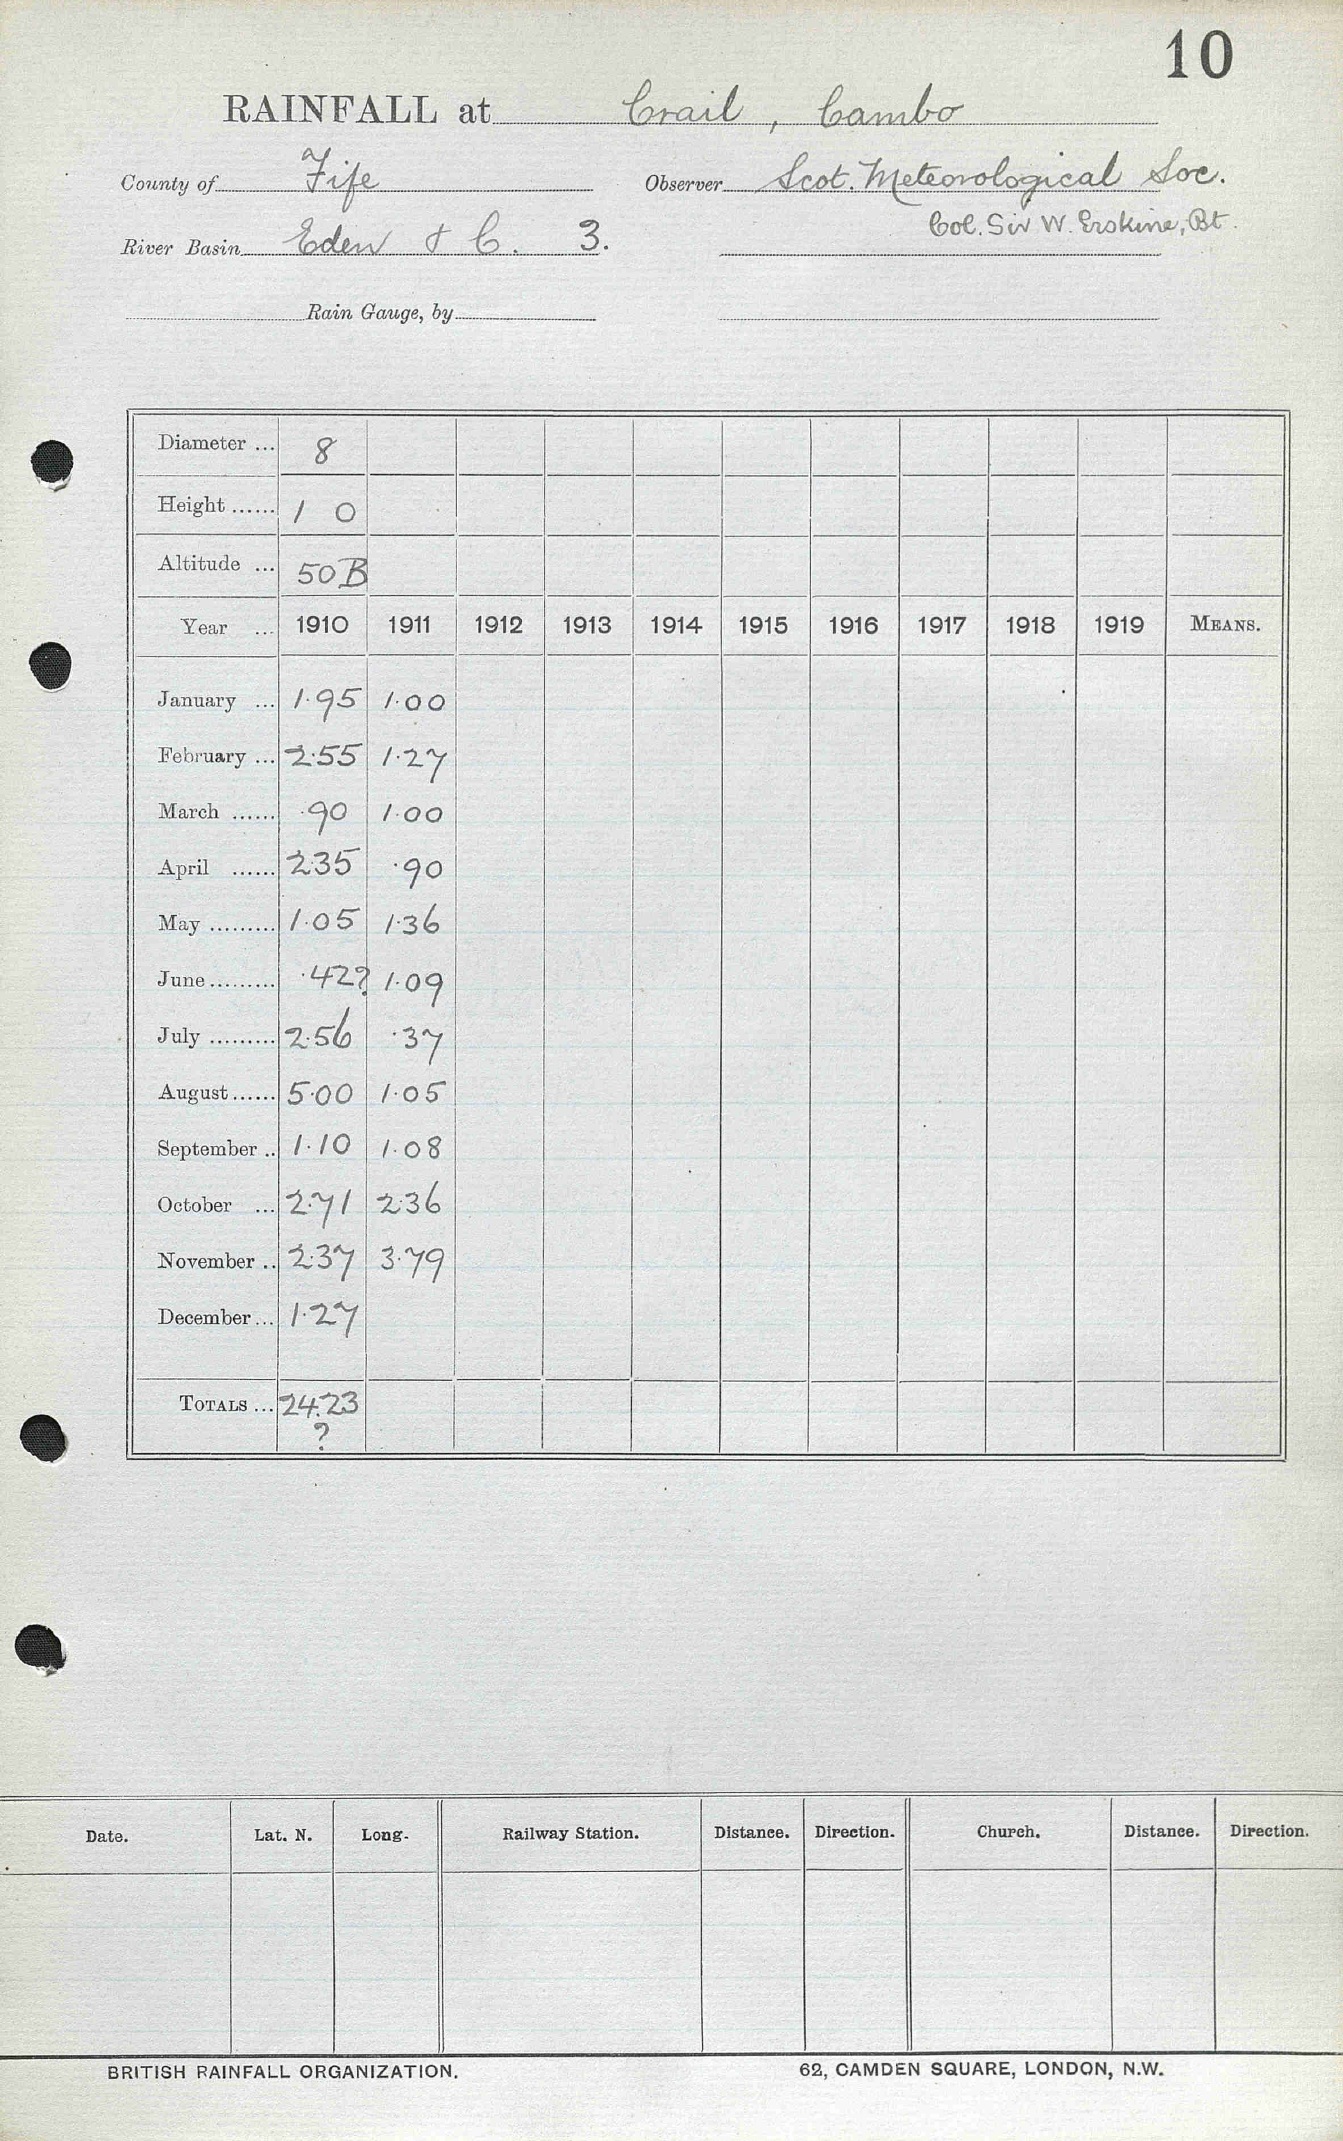 10
RAINFALL at Crail, Cambo
County of Fife Observer Scot. Meteorological Soc.
Col. Sir W. Erskine, Bt.
River Basin Eden & C. 3.
Rain Gauge, by
Diameter ... 8
Height ...... 1 0
Altitude ... 50 B
Year ... 1910 1911 1912 1913 1914 1915 1916 1917 1918 1919 MEANS.
January ... 1.95 1.00
February ... 2.55 1.27
March ...... .90 1.00
April ...... 2.35 .90
May ......... 1.05 1.36
June ......... .42? 1.09
July ......... 2.56 .37
August ...... 5.00 1.05
September .. 1.10 1.08
October ... 2.71 2.36
November .. 2.37 3.79
December ... 1.27
TOTALS ... 24.23
?
Date. Lat. N. Long. Railway Station. Distance. Direction. Church. Distance. Direction.
BRITISH RAINFALL ORGANIZATION. 62, CAMDEN SQUARE, LONDON, N.W.